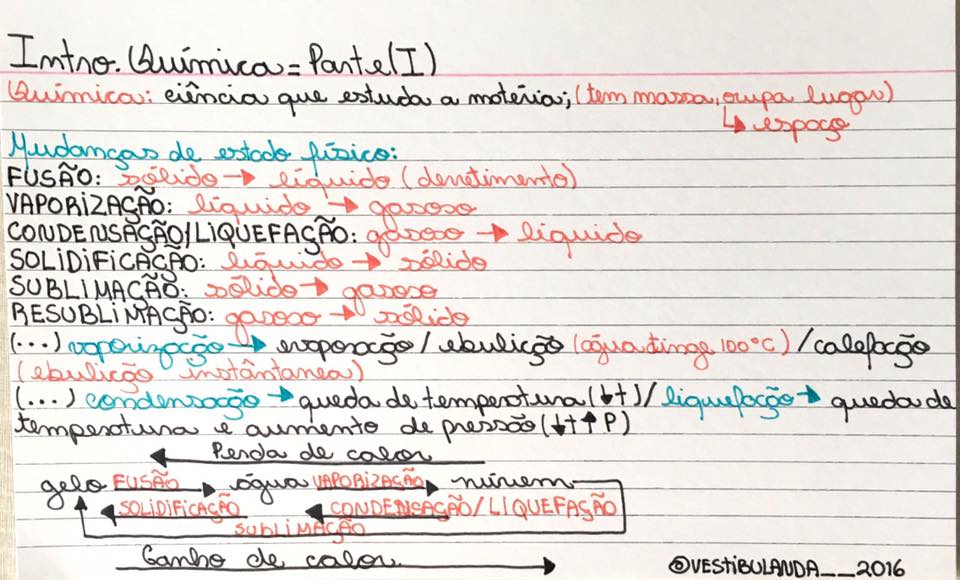 Intro. Química = Parte(I)
Química: ciência que estuda a matéria; (tem massa, ocupa lugar)
↳ espaço
Mudanças de estado físico:
FUSÃO: sólido → líquido (derretimento)
VAPORIZAÇÃO: líquido → gasoso
CONDENSAÇÃO/LIQUEFAÇÃO: gasoso → líquido
SOLIDIFICAÇÃO: líquido → sólido
SUBLIMAÇÃO: sólido → gasoso
RESUBLIMAÇÃO: gasoso → sólido
(...) vaporização → evaporação / ebulição (água atinge 100°C) / calefação
(ebulição instântanea)
(...) condensação → queda de temperatura (↓t) / liquefação → queda de
temperatura e aumento de pressão (↓t ↑ P)
Perda de calor
gelo FUSÃO água VAPORIZAÇÃO núvem
SOLIDIFICAÇÃO CONDENSAÇÃO/LIQUEFAÇÃO
SUBLIMAÇÃO
Ganho de calor
@VESTIBULANDA__2016